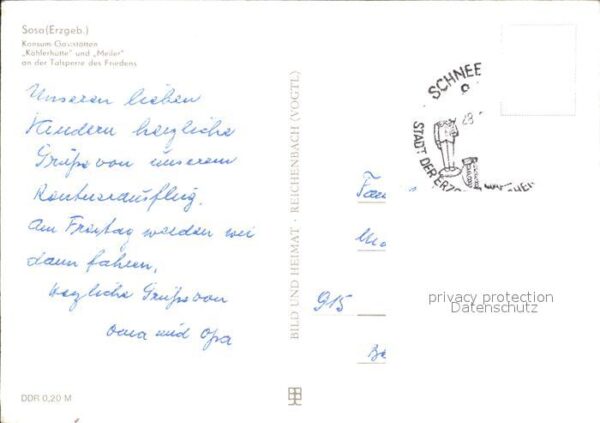 Sosa (Erzgeb.)
Konsum-Gaststätten
„Köhlerhütte" und „Meiler"
an der Talsperre des Friedens
Unseren lieben
Kindern herzliche
Grüße von unserem
Am Freitag werden wir
dann fahren.
Herzliche Grüße von
Oma und Opa
DDR 0,20 M
BILD UND HEIMAT · REICHENBACH (VOGTL)
SCHNEE
STADT DER
Fam
915
privacy protection
Datenschutz